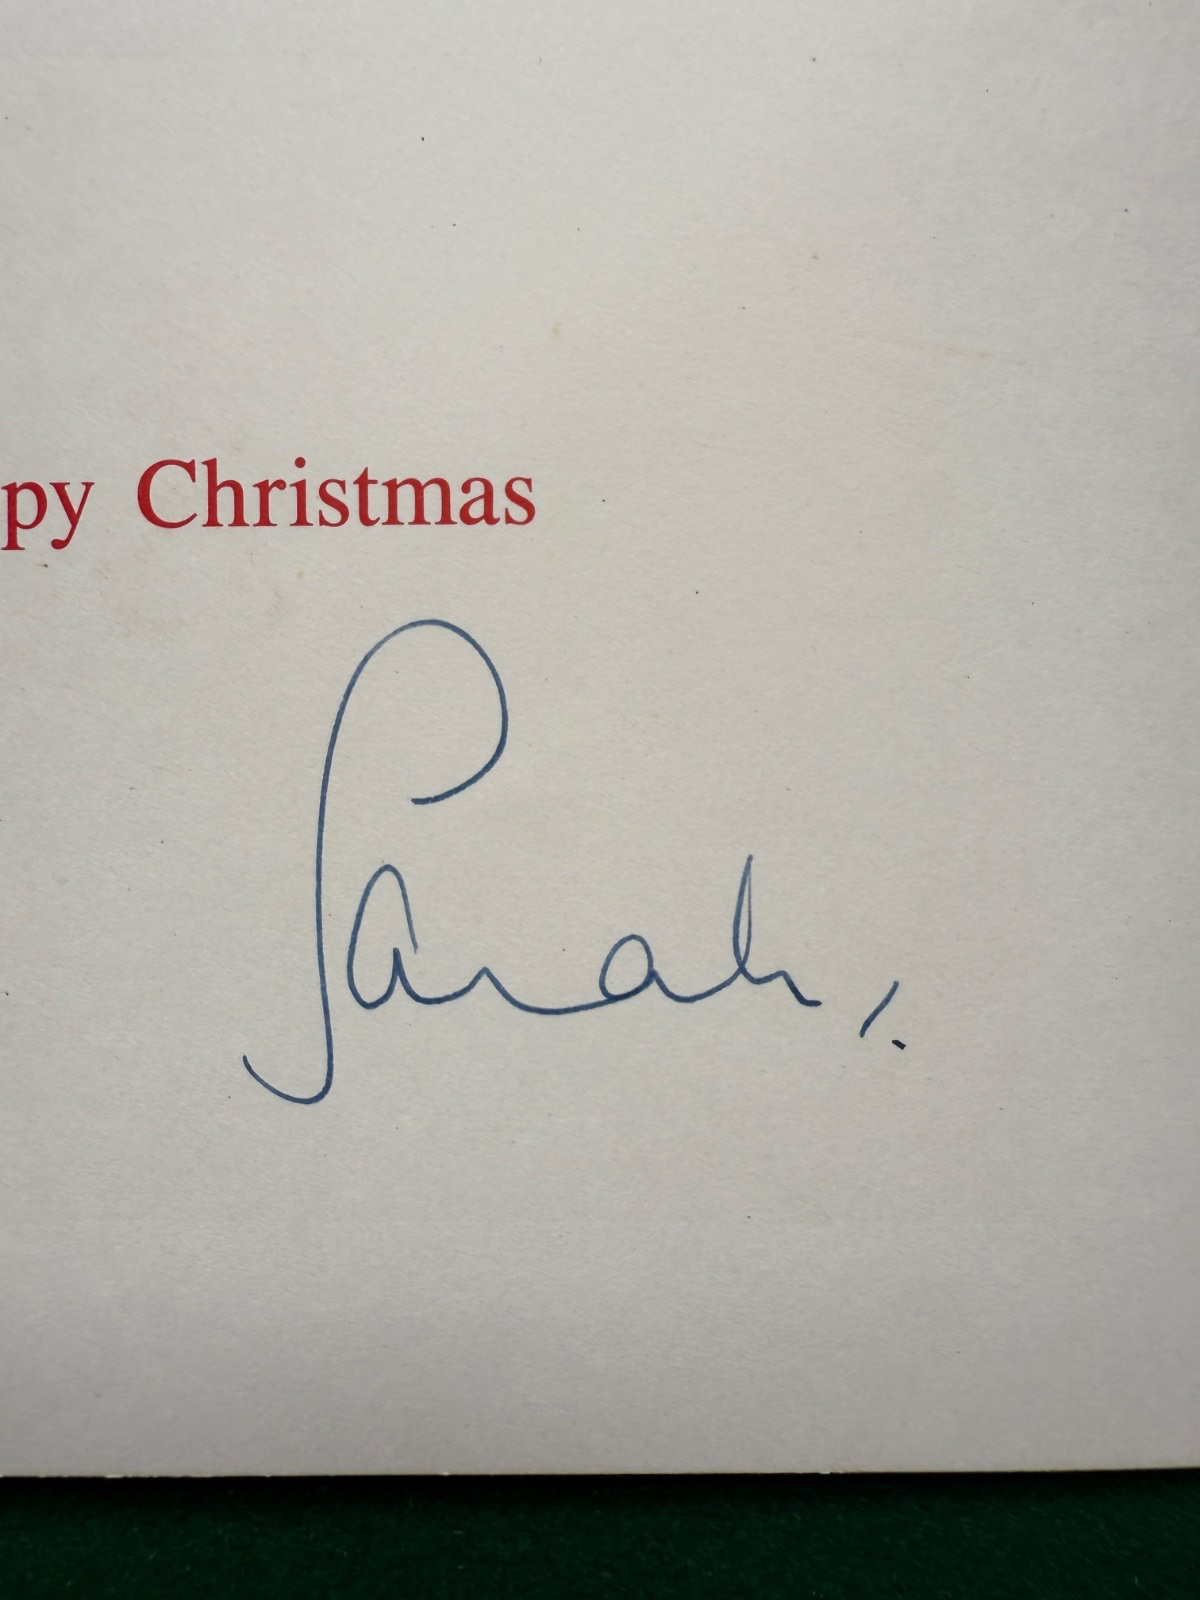 py Christmas
Sarah!